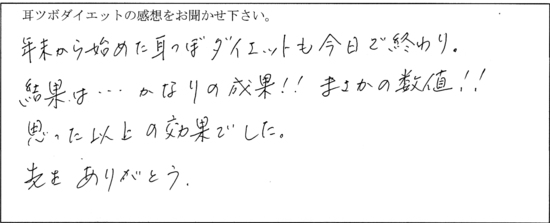 耳ツボダイエットの感想をお聞かせ下さい。
年末から始めた耳つぼダイエットも今日で終わり。
結果は…かなりの成果!! まさかの数値!!
思った以上の効果でした。
先生ありがとう.